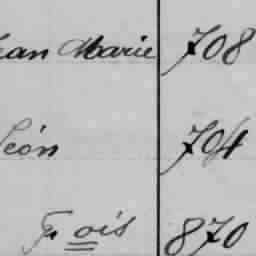 ean Marie 708
Léon 704
Fr ois 870